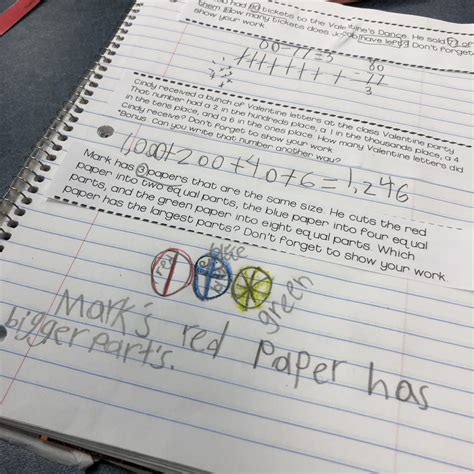 had 80 tickets to the Valentine's Dance. He sold 77 of
them. How many tickets does J have left? Don't forget
show your work.
80-77=3 80
-77
3
Cindy received a bunch of Valentine letters at the class Valentine party.
That number had a 2 in the hundreds place, a 1 in the thousands place, a 4
in the tens place, and a 6 in the ones place. How many Valentine letters did
Cindy receive? Don't forget to show your work
*Bonus: Can you write that number another way?
1,000+200+40+6=1,246
Mark has 3 papers that are the same size. He cuts the red
paper into two equal parts, the blue paper into four equal
parts, and the green paper into eight equal parts. Which
paper has the largest parts? Don't forget to show your work
red blue green
Mark's red Paper has
bigger part's.